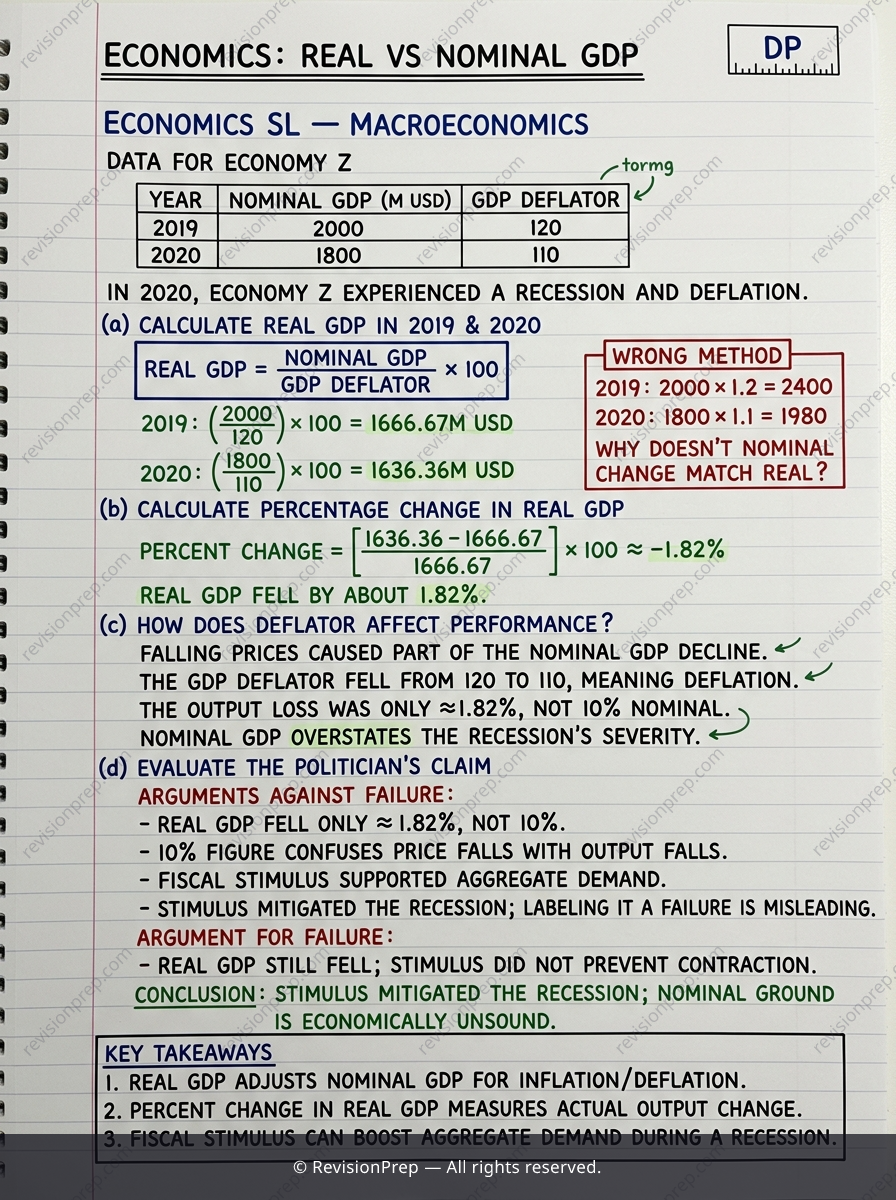 ECONOMICS: REAL VS NOMINAL GDP
DP
ECONOMICS SL — MACROECONOMICS
DATA FOR ECONOMY Z
tormg
YEAR NOMINAL GDP (M USD) GDP DEFLATOR
2019 2000 120
2020 1800 110
IN 2020, ECONOMY Z EXPERIENCED A RECESSION AND DEFLATION.
(a) CALCULATE REAL GDP IN 2019 & 2020
REAL GDP = NOMINAL GDP / GDP DEFLATOR × 100
2019: (2000/120) × 100 = 1666.67M USD
2020: (1800/110) × 100 = 1636.36M USD
WRONG METHOD
2019: 2000 × 1.2 = 2400
2020: 1800 × 1.1 = 1980
WHY DOESN'T NOMINAL
CHANGE MATCH REAL?
(b) CALCULATE PERCENTAGE CHANGE IN REAL GDP
PERCENT CHANGE = [1636.36 – 1666.67 / 1666.67] × 100 ≈ –1.82%
REAL GDP FELL BY ABOUT 1.82%.
(c) HOW DOES DEFLATOR AFFECT PERFORMANCE?
FALLING PRICES CAUSED PART OF THE NOMINAL GDP DECLINE.
THE GDP DEFLATOR FELL FROM 120 TO 110, MEANING DEFLATION.
THE OUTPUT LOSS WAS ONLY ≈1.82%, NOT 10% NOMINAL.
NOMINAL GDP OVERSTATES THE RECESSION'S SEVERITY.
(d) EVALUATE THE POLITICIAN'S CLAIM
ARGUMENTS AGAINST FAILURE:
– REAL GDP FELL ONLY ≈ 1.82%, NOT 10%.
– 10% FIGURE CONFUSES PRICE FALLS WITH OUTPUT FALLS.
– FISCAL STIMULUS SUPPORTED AGGREGATE DEMAND.
– STIMULUS MITIGATED THE RECESSION; LABELING IT A FAILURE IS MISLEADING.
ARGUMENT FOR FAILURE:
– REAL GDP STILL FELL; STIMULUS DID NOT PREVENT CONTRACTION.
CONCLUSION: STIMULUS MITIGATED THE RECESSION; NOMINAL GROUND
IS ECONOMICALLY UNSOUND.
KEY TAKEAWAYS
1. REAL GDP ADJUSTS NOMINAL GDP FOR INFLATION/DEFLATION.
2. PERCENT CHANGE IN REAL GDP MEASURES ACTUAL OUTPUT CHANGE.
3. FISCAL STIMULUS CAN BOOST AGGREGATE DEMAND DURING A RECESSION.
© RevisionPrep — All rights reserved.
revisionprep.com